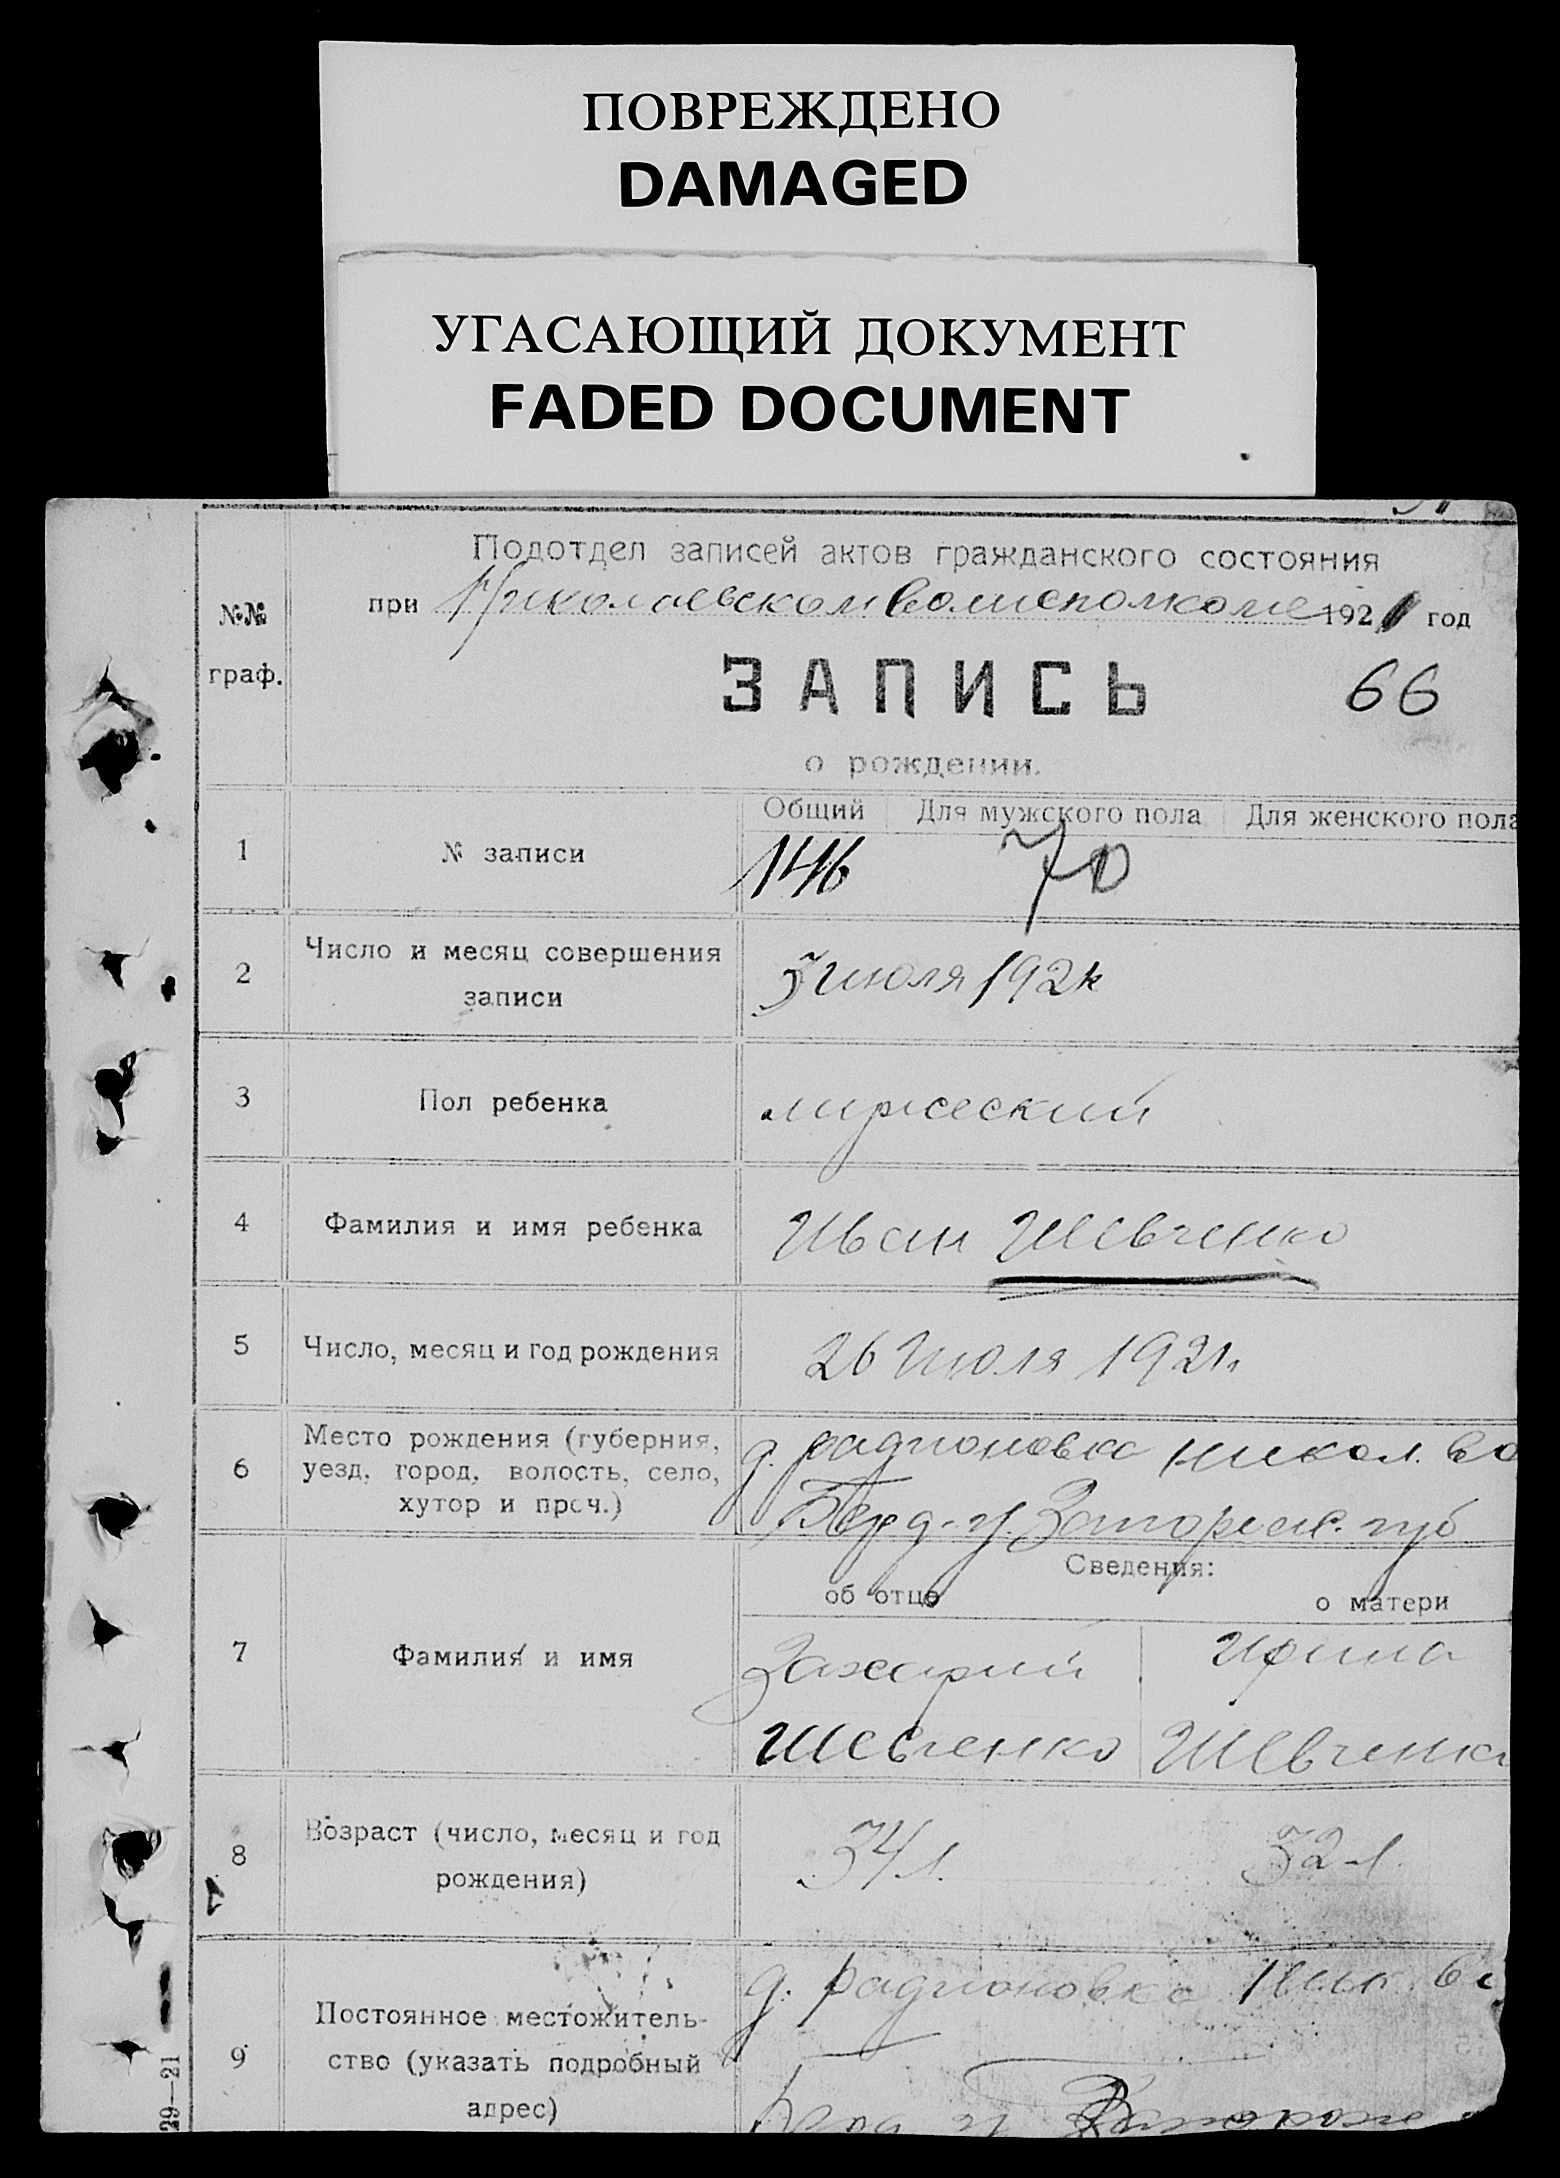 ПОВРЕЖДЕНО
DAMAGED
УГАСАЮЩИЙ ДОКУМЕНТ
FADED DOCUMENT
Подотдел записей актов гражданского состояния
№№ граф.
при Николаевском Волисполкоме 1921 год
ЗАПИСЬ 66
о рождении.
Общий Для мужского пола Для женского пола
1 № записи 146 70
2 Число и месяц совершения
записи
июля 192
3 Пол ребенка мужеский
4 Фамилия и имя ребенка Иван Шевченко
5 Число, месяц и год рождения 26 Июля 1921.
6 Место рождения (губерния,
уезд, город, волость, село,
хутор и проч.)
д. радионовка никол. во
Берд. у. Запорож. губ
Сведения:
об отце о матери
7 Фамилия и имя
Захарий Ирина
Шевченко Шевченко
8 Возраст (число, месяц и год
рождения)
34 л. 32 л.
9 Постоянное местожитель-
ство (указать подробный
адрес)
д. радионовка Ник. во
29—21